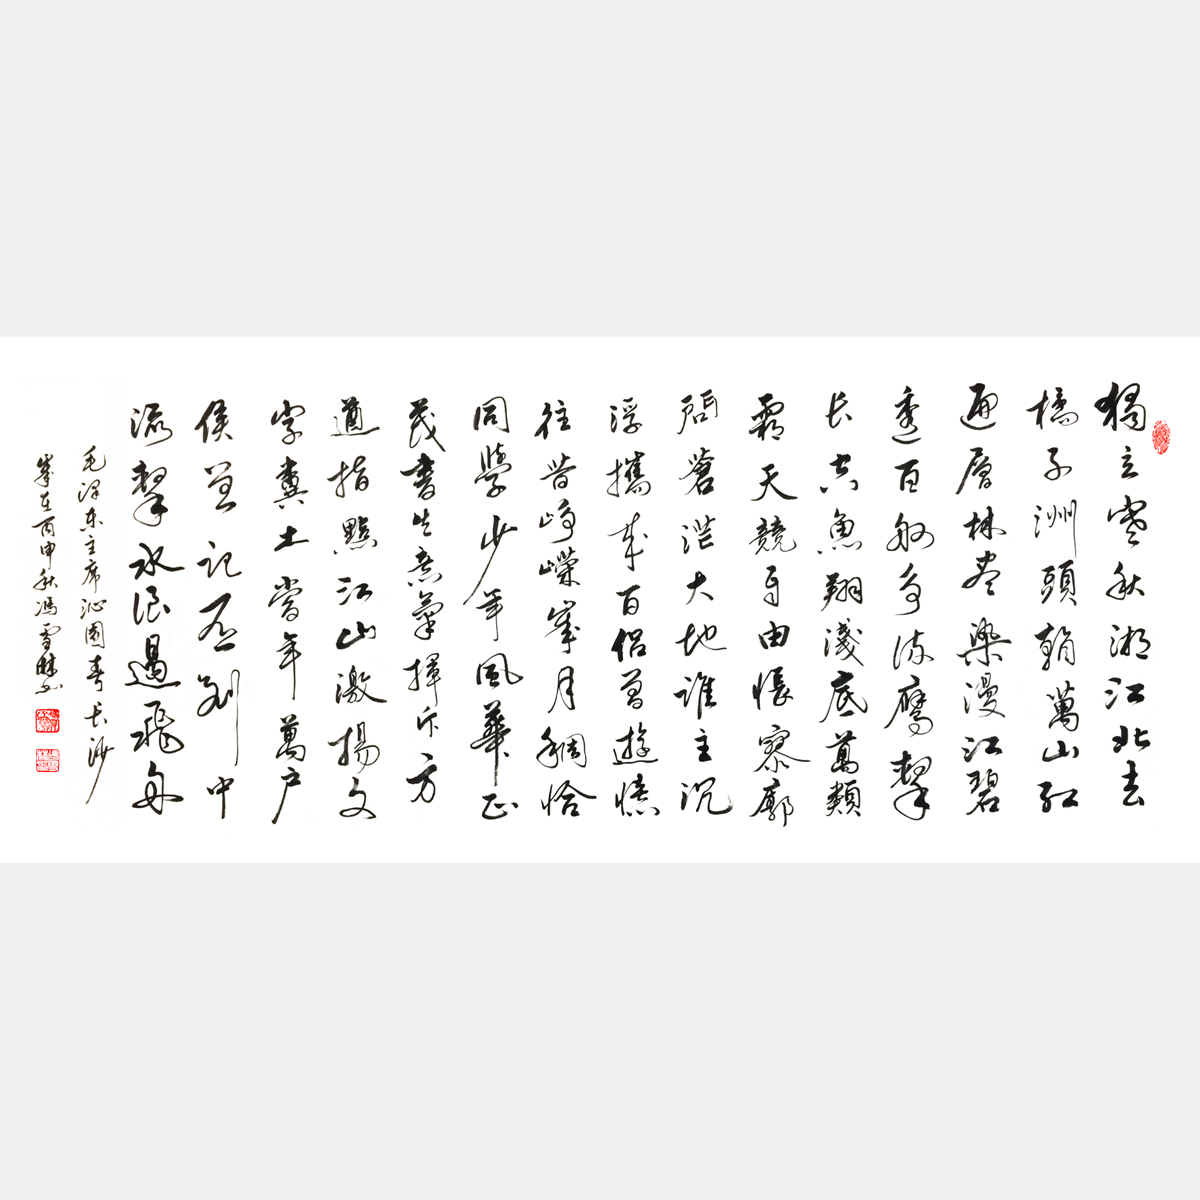 獨立寒秋湘江北去
橘子洲頭看萬山红
遍層林盡染漫江碧
透百舸爭流鷹擊
长空魚翔淺底萬類
霜天競自由悵寥廓
問蒼茫大地誰主沉
浮攜來百侶曾遊憶
往昔崢嶸歲月稠恰
同學少年風華正
茂書生意氣揮斥方
遒指點江山激揚文
字糞土當年萬户
侯曾記否到中
流擊水浪遏飛舟
毛泽东主席沁園春长沙
歲在丙申秋馮雪林书